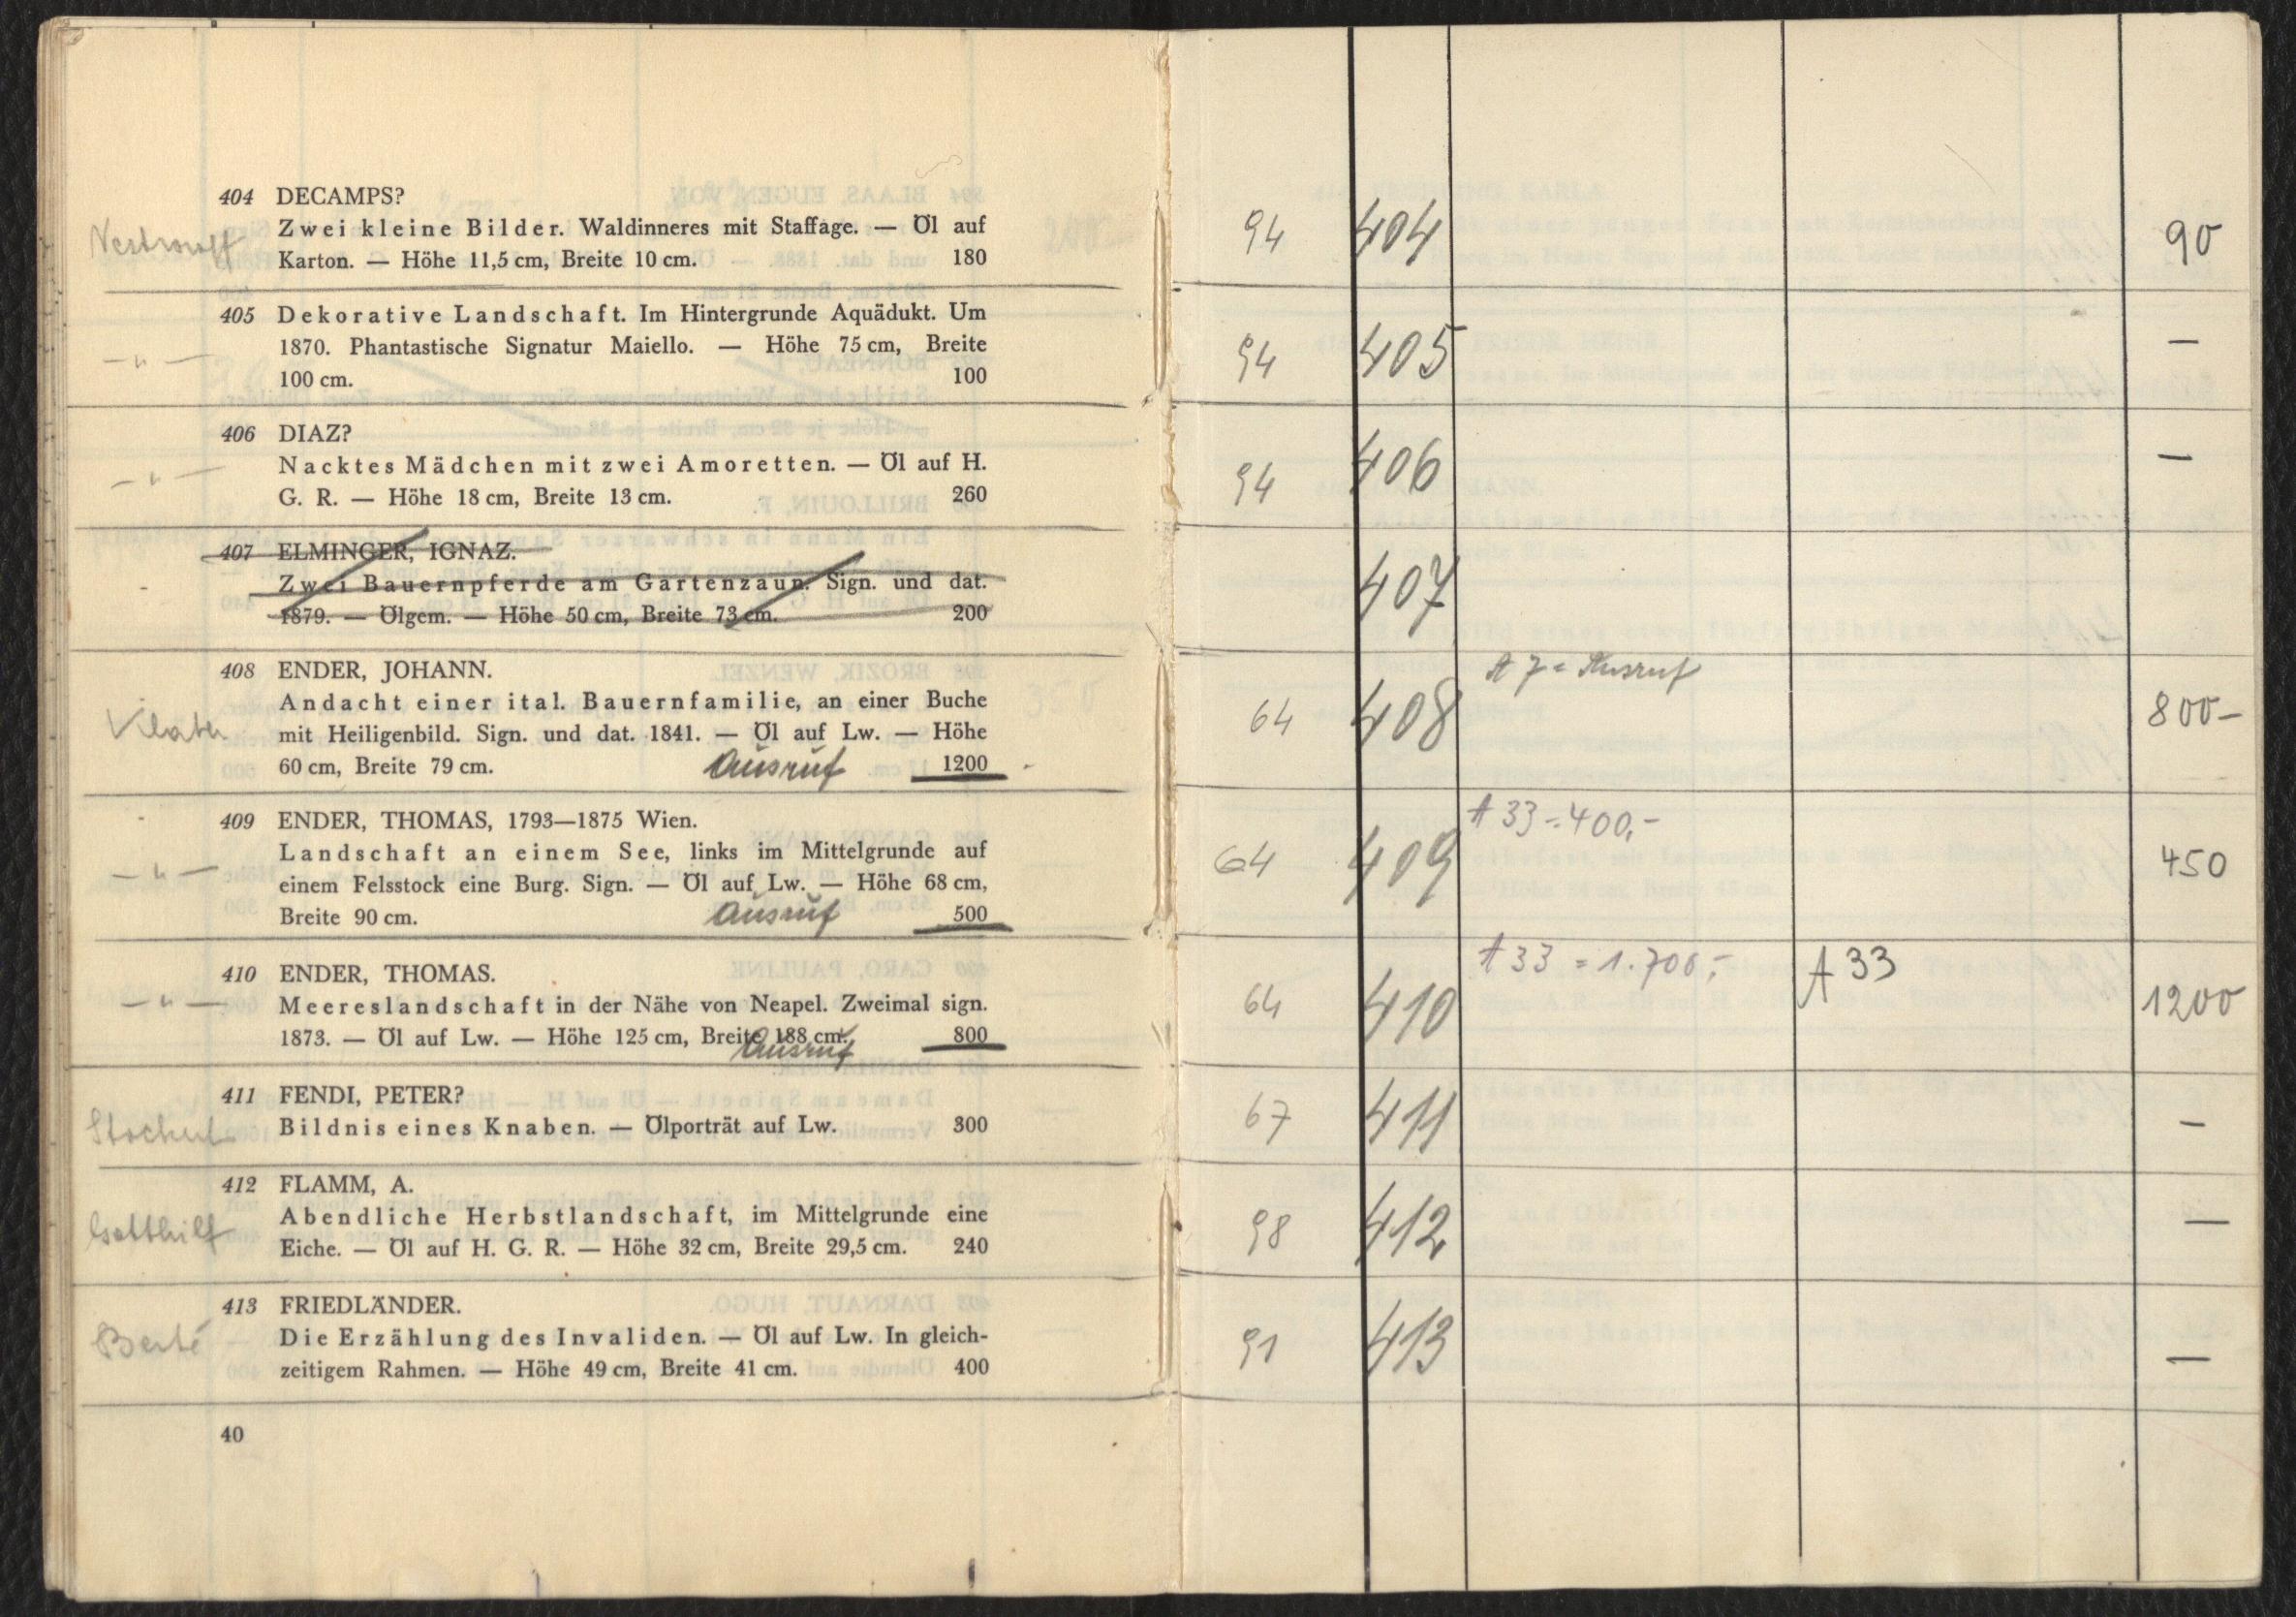 404 DECAMPS?
Zwei kleine Bilder. Waldinneres mit Staffage. — Öl auf
Karton. — Höhe 11,5 cm, Breite 10 cm. 180
405 Dekorative Landschaft. Im Hintergrunde Aquädukt. Um
1870. Phantastische Signatur Maiello. — Höhe 75 cm, Breite
100 cm. 100
— " —
406 DIAZ?
Nacktes Mädchen mit zwei Amoretten. — Öl auf H.
— " —
G. R. — Höhe 18 cm, Breite 13 cm. 260
407 ELMINGER, IGNAZ.
Zwei Bauernpferde am Gartenzaun. Sign. und dat.
1879. — Ölgem. — Höhe 50 cm, Breite 73 cm. 200
408 ENDER, JOHANN.
Andacht einer ital. Bauernfamilie, an einer Buche
mit Heiligenbild. Sign. und dat. 1841. — Öl auf Lw. — Höhe
60 cm, Breite 79 cm. Ausruf 1200
409 ENDER, THOMAS, 1793—1875 Wien.
Landschaft an einem See, links im Mittelgrunde auf
— " —
einem Felsstock eine Burg. Sign. — Öl auf Lw. — Höhe 68 cm,
Breite 90 cm. Ausruf 500
410 ENDER, THOMAS.
— " —
Meereslandschaft in der Nähe von Neapel. Zweimal sign.
1873. — Öl auf Lw. — Höhe 125 cm, Breite 188 cm. 800
Ausruf
411 FENDI, PETER?
Bildnis eines Knaben. — Ölporträt auf Lw. 300
412 FLAMM, A.
Abendliche Herbstlandschaft, im Mittelgrunde eine
Gotthilf
Eiche. — Öl auf H. G. R. — Höhe 32 cm, Breite 29,5 cm. 240
413 FRIEDLÄNDER.
Berté
Die Erzählung des Invaliden. — Öl auf Lw. In gleich-
zeitigem Rahmen. — Höhe 49 cm, Breite 41 cm. 400
40
94 404 90
94 405 —
94 406 —
407
A 7 = Ausruf
64 408 800-
A 33 = 400,-
64 409 450
A 33 = 1.700,- A 33
64 410 1200
67 411 —
98 412 —
91 413 —